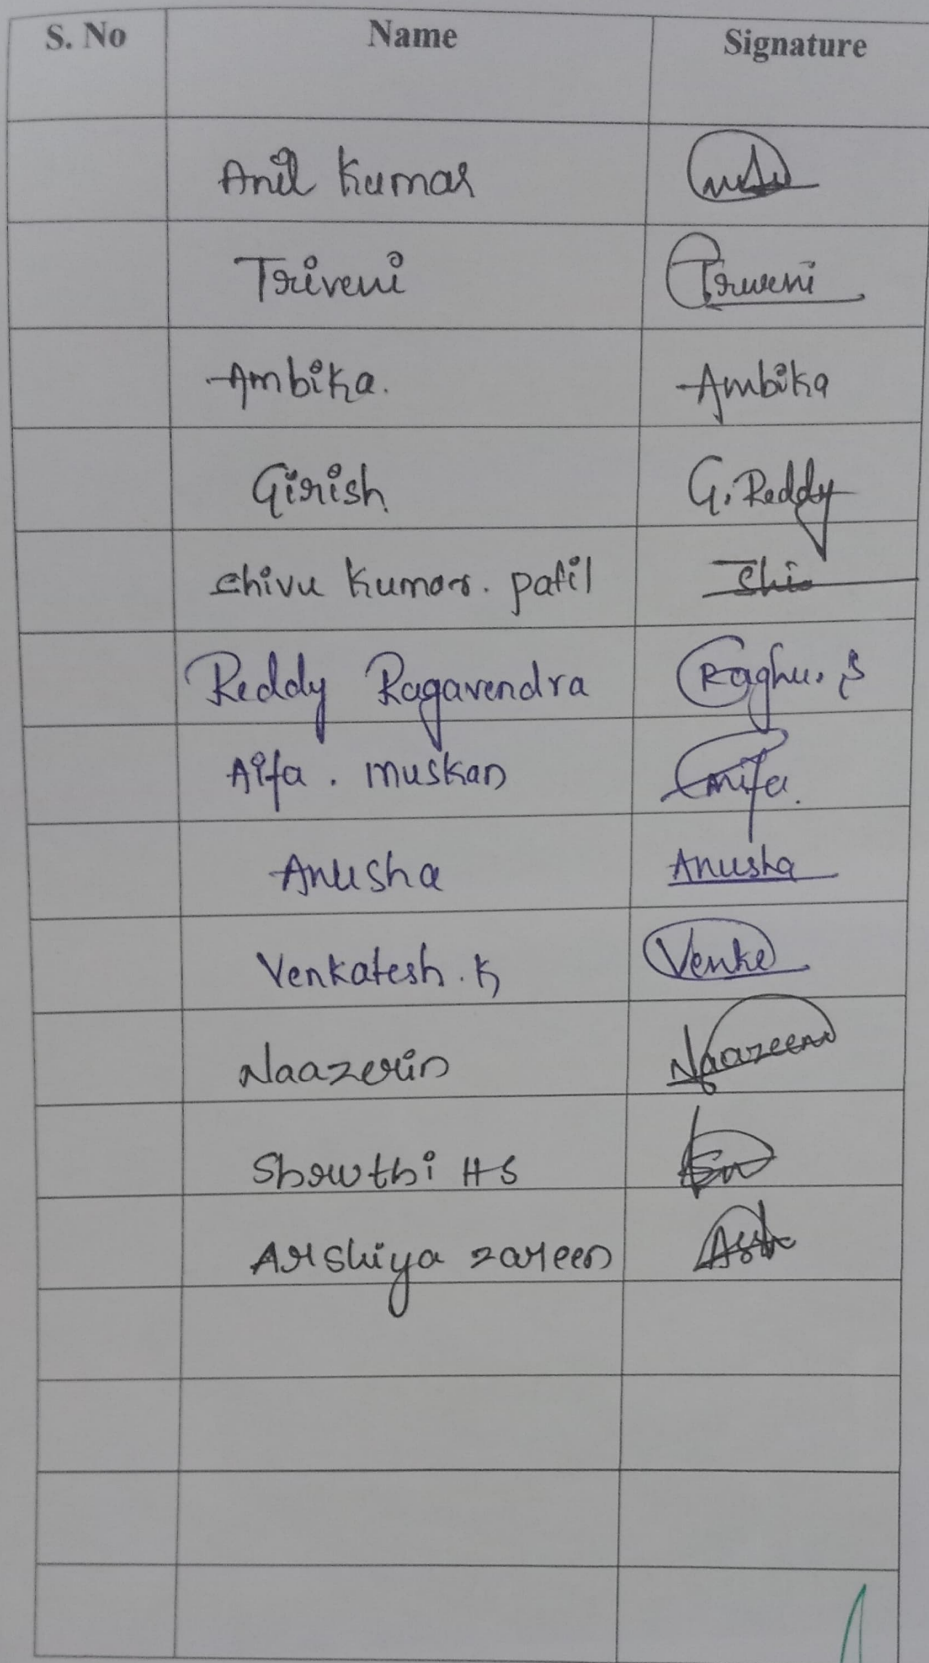 S. No Name Signature
Anil Kumar
Triveni Triveni
Ambika. Ambika
Girish G. Reddy
Shivu Kumar. patil Shi
Reddy Ragavendra Raghu. S
Aifa . muskan Aifa.
Anusha Anusha
Venkatesh . K Venke
Naazerin Naazeen
Showthi H S
Arshiya zareen Ash